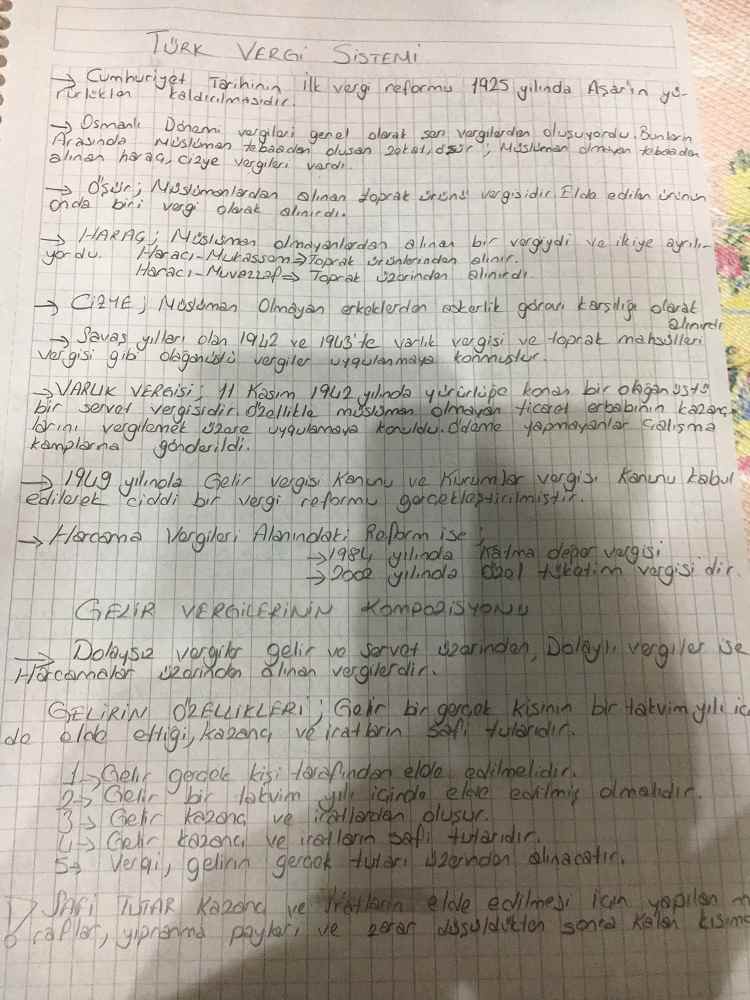 TÜRK VERGİ SİSTEMİ
→ Cumhuriyet Tarihinin ilk vergi reformu 1925 yılında Aşar'ın yü-
rürlükten kaldırılmasıdır.
→ Osmanlı Dönemi vergileri genel olarak şeri vergilerden oluşuyordu. Bunların
Arasında Müslüman tebaadan oluşan zekat, öşür ; Müslüman olmayan tebaadan
alınan haraç, cizye vergileri vardı.
→ Öşür ; Müslümanlardan alınan toprak ürünü vergisidir. Elde edilen ürünün
onda biri vergi olarak alınırdı.
→ HARAÇ ; Müslüman olmayanlardan alınan bir vergiydi ve ikiye ayrılı-
yordu. Haracı-Mukassem ⇒ Toprak ürünlerinden alınır.
Haracı-Muvazzaf ⇒ Toprak üzerinden alınırdı.
→ CİZYE ; Müslüman Olmayan erkeklerden askerlik görevi karşılığı olarak
alınırdı
→ Savaş yılları olan 1942 ve 1943'te varlık vergisi ve toprak mahsülleri
vergisi gibi olağanüstü vergiler uygulanmaya konmuştur.
→ VARLIK VERGİSİ ; 11 Kasım 1942 yılında yürürlüğe konan bir olağanüstü
bir servet vergisidir. Özellikle müslüman olmayan ticaret erbabının kazanç-
larını vergilemek üzere uygulamaya konuldu. Ödeme yapmayanlar çalışma
kamplarına gönderildi.
→ 1949 yılında Gelir vergisi Kanunu ve Kurumlar vergisi Kanunu kabul
edilerek ciddi bir vergi reformu gerçekleştirilmiştir.
→ Harcama Vergileri Alanındaki Reform ise ;
→ 1984 yılında Katma değer vergisi
→ 2002 yılında özel tüketim vergisi dir.
GELİR VERGİLERİNİN KOMPOZİSYONU
→ Dolaysız vergiler gelir ve servet üzerinden, Dolaylı vergiler ise
Harcamalar üzerinden alınan vergilerdir.
GELİRİN ÖZELLİKLERİ ; Gelir bir gerçek kişinin bir takvim yılı iç
de elde ettiği, kazanç ve iratların safi tutarıdır.
1→ Gelir gerçek kişi tarafından elde edilmelidir.
2→ Gelir bir takvim yılı içinde elde edilmiş olmalıdır.
3→ Gelir kazanç ve iratlardan oluşur.
4→ Gelir kazancı ve iratların safi tutarıdır.
5→ Vergi, gelirin gerçek tutarı üzerinden alınacaktır.
! SAFİ TUTAR kazanç ve iratların elde edilmesi için yapılan m
raflar, yıpranma payları ve zarar düşüldükten sonra kalan kısımd